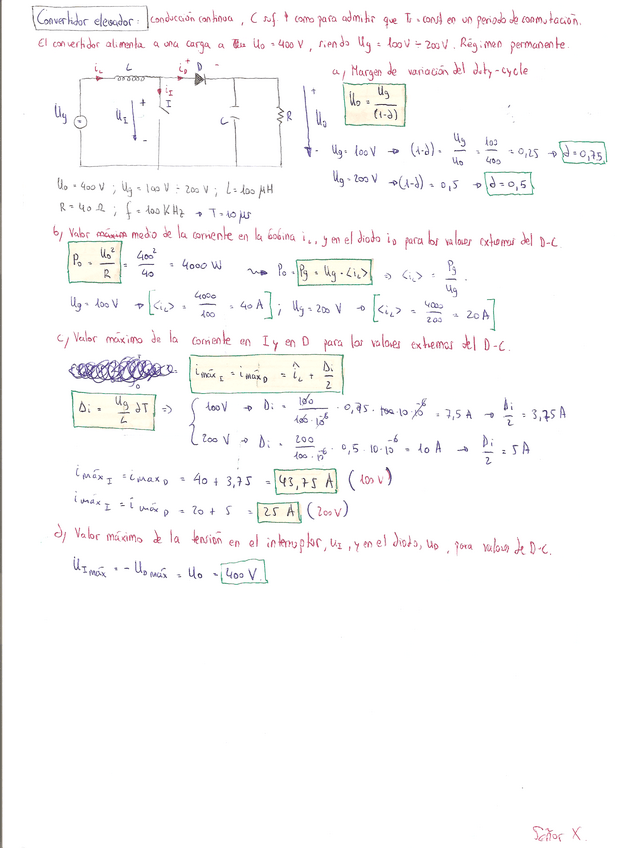 Convertidor elevador: conducción continua, C suf ↑ como para admitir que U = const en un periodo de conmutación.
El convertidor alimenta a una carga a U₀ = 400 V, siendo Ug = 100 V ÷ 200 V. Régimen permanente.
a) Margen de variación del duty-cycle
iL L iD⁺ D -
Ug + UI - iI I C R + U₀ -
U₀ = Ug/(1-d)
Ug = 100V → (1-d) = Ug/U₀ = 100/400 = 0,25 → d = 0,75
Ug = 200V → (1-d) = 0,5 → d = 0,5
U₀ = 400 V ; Ug = 100 V ÷ 200 V ; L = 100 μH
R = 40 Ω ; f = 100 KHz → T = 10 μs
b) Valor medio de la corriente en la bobina iL, y en el diodo iD para los valores extremos del D-C.
P₀ = U₀²/R = 400²/40 = 4000 W ⇝ P₀ = Pg = Ug · <iL> ⇒ <iL> = Pg/Ug.
Ug = 100 V → [<iL> = 4000/100 = 40 A] ; Ug = 200 V → [<iL> = 4000/200 = 20 A]
c) Valor máximo de la corriente en I y en D para los valores extremos del D-C.
i máx I = i máx D = îL + Δi/2
Δi = Ug/L dT ⇒ { 100V → Δi = 100/100·10⁻⁶ · 0,75 · 10·10⁻⁶ = 7,5 A → Δi/2 = 3,75 A
200 V → Δi = 200/100·10⁻⁶ · 0,5 · 10·10⁻⁶ = 10 A → Δi/2 = 5 A
i máx I = i max D = 40 + 3,75 = 43,75 A (100 V)
i máx I = i máx D = 20 + 5 = 25 A (200 V)
d) Valor máximo de la tensión en el interruptor, UI, y en el diodo, UD, para valores de D-C.
UI máx = - UD máx = U₀ = 400 V.
Señor X.